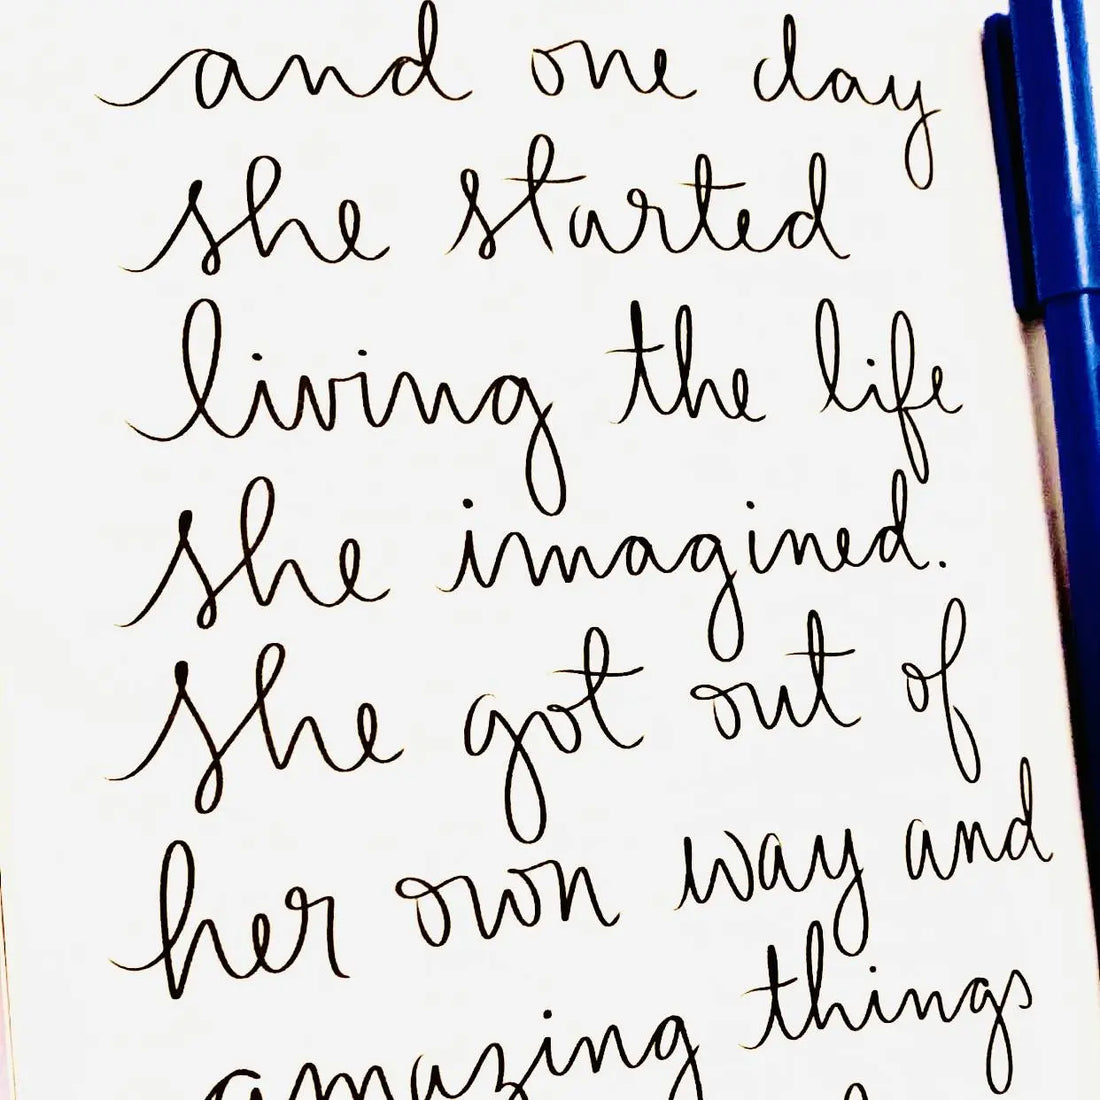 and one day
she started
living the life
she imagined.
she got out of
her own way and
amazing things